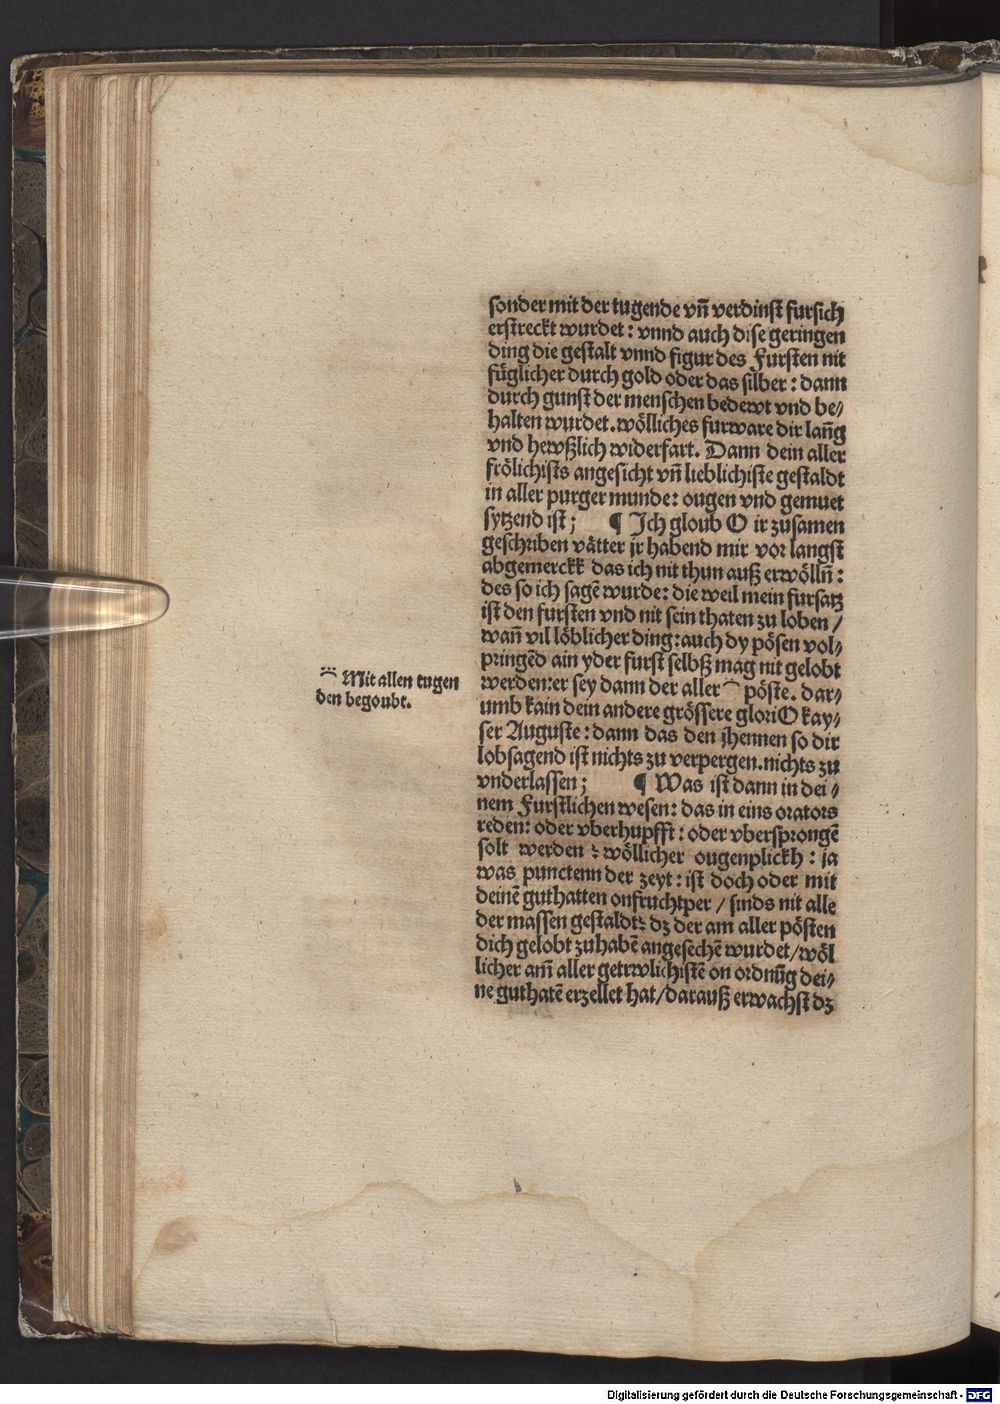 sonder mit der tugende vñ verdinst fursich
erstreckt wurdet: vnnd auch dise geringen
ding die gestalt vnnd figur des Fursten nit
fůglicher durch gold oder das silber: dann
durch gunst der menschen bedewt vnd be⸗
halten wurdet. wölliches furware dir lañg
vnd hewßlich widerfart. Dann dein aller
frölichists angesicht vñ lieblichiste gestaldt
in aller purger munde: ougen vnd gemuet
sytzend ist; ¶ Jch gloub O ir zusamen
geschriben våtter jr habend mir vor langst
abgemerckk das ich nit thun auß erwöllñ:
des so ich sagē wurde: die weil mein fursatz
ist den fursten vnd nit sein thaten zu loben /
wañ vil löblicher ding: auch dy pösen vol⸗
pringēd ain yder furst selbß mag nit gelobt
werden: er sey dann der aller ⁀ pöste. dar⸗
umb kain dein andere grössere glori O kay⸗
ser Auguste: dann das den jhennen so dir
lobsagend ist nichts zu verpergen. nichts zu
vnderlassen; ¶ Was ist dann in dei⸗
nem Furstlichen wesen: das in eins orators
reden: oder vberhupfft: oder vbersprongē
solt werden ? wöllicher ougenplickh: ja
was punctenn der zeyt: ist doch oder mit
deinē guthatten onfruchtper / sinds nit alle
der massen gestaldt? dz der am aller pösten
dich gelobt zuhabē angesechē wurdet / wöl
licher am̄ aller getrwlichistē on ordnūg dei⸗
ne guthatē erzellet hat / darauß erwachst dz
⁀ Mit allen tugen
den begoubt.
Digitalisierung gefördert durch die Deutsche Forschungsgemeinschaft - DFG